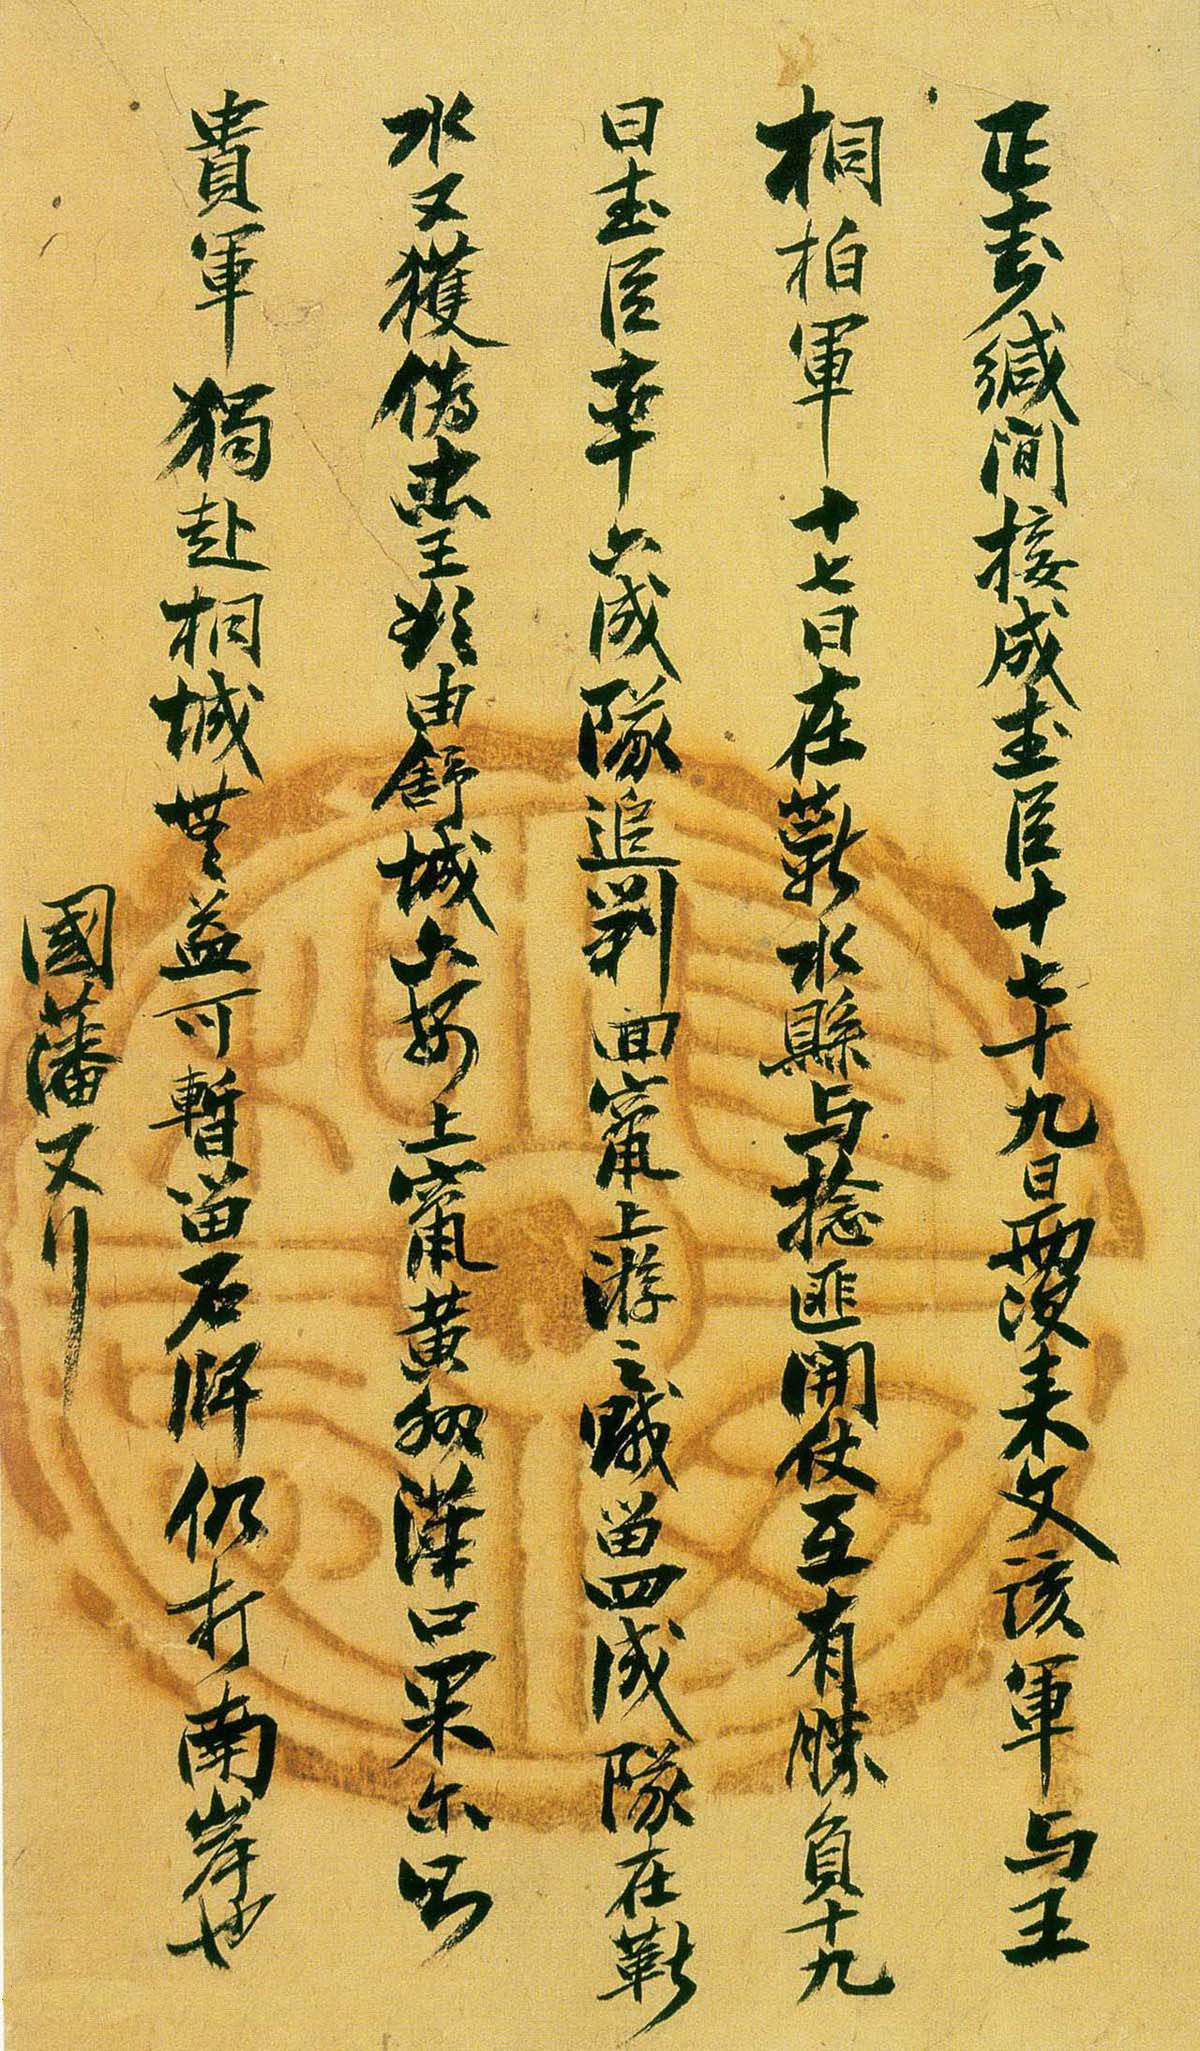 正封緘間接成武臣十七十九日兩次來文該軍与王
桐柏軍十七日在蘄水縣与捻匪開仗互有勝負十九
日武臣率六成隊追剿回竄上游之賊留四成隊在蘄
水又獲偽忠王欲由舒城六安上竄黃州漢口果尔則
貴軍獨赴桐城無益可暫留石牌仍打南岸也
國藩又行